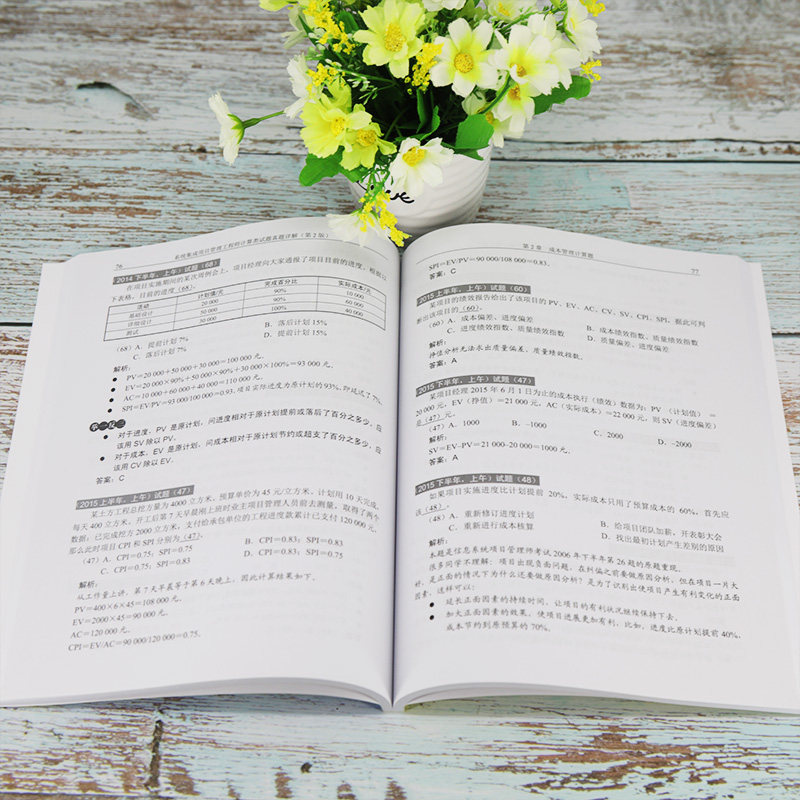 系统集成项目管理工程师计算类试题真题详解（第2版）
76
2014下半年，上午）试题（68）
在项目实施期间的某次周例会上，项目经理向大家通报了项目目前的进度，根据以
下表格，目前的进度（68）。
活动 计划值/元 完成百分比 实际成本/元
基础设计 20 000 90% 10 000
详细设计 50 000 90% 60 000
测试 30 000 100% 40 000
（68）A．提前计划7% B．落后计划15%
C．落后计划7% D．提前计划15%
解析：
● PV=20 000+50 000+30 000=100 000元。
● EV=20 000×90%+50 000×90%+30 000×100%=93 000元。
● AC=10 000+60 000+40 000=110 000元。
● SPI=EV/PV=93 000/100 000=0.93，项目实际进度为原计划的93%，即延迟了7%。
举一反三
● 对于进度，PV是原计划，问进度相对于原计划提前或落后了百分之多少，应
该用SV除以PV。
● 对于成本，EV是原计划，问成本相对于原计划节约或超支了百分之多少，应
该用CV除以EV。
答案：C
2015上半年，上午）试题（47）
某土方工程总挖方量为4000立方米，预算单价为45元/立方米，计划用10天完成，
每天400立方米，开工后第7天早晨刚上班时业主项目管理人员前去测量，取得了两个
数据：已完成挖方2000立方米，支付给承包单位的工程进度款累计已支付120 000元，
那么此时项目CPI和SPI分别为（47）。
（47）A．CPI=0.75；SPI=0.75 B．CPI=0.83；SPI=0.83
C．CPI=0.75；SPI=0.83 D．CPI=0.83；SPI=0.75
解析：
从工作量上讲，第7天早晨等于第6天晚上，因此计算结果如下。
PV=400×6×45=108 000元。
EV=2000×45=90 000元。
AC=120 000元。
CPI=EV/AC=90 000/120 000=0.75。
第2章 成本管理计算题
77
SPI=EV/PV=90 000/108 000=0.83。
答案：C
2015上半年，上午）试题（60）
某项目的绩效报告给出了该项目的PV、EV、AC、CV、SV、CPI、SPI，据此可判
断出该项目的（60）。
（60）A．成本偏差、进度偏差 B．成本绩效指数、质量绩效指数
C．进度绩效指数、质量绩效指数 D．质量偏差、进度偏差
解析：
挣值分析无法求出质量偏差、质量绩效指数。
答案：A
2015下半年，上午）试题（47）
某项目经理2015年6月1日为止的成本执行（绩效）数据为：PV（计划值）=
20 000元，EV（挣值）=21 000元，AC（实际成本）=22 000元，则SV（进度偏差）
是（47）元。
（47）A．1000 B．–1000 C．2000 D．–2000
解析：
SV=EV–PV=21 000–20 000=1000元。
答案：A
2015下半年，上午）试题（48）
如果项目实施进度比计划提前20%，实际成本只用了预算成本的60%，首先应
该（48）。
（48）A．重新修订进度计划 B．给项目团队加薪，开表彰大会
C．重新进行成本核算 D．找出最初计划产生差别的原因
解析：
本题是信息系统项目管理师考试2006年下半年第26题的原题重现。
很多同学不理解：项目出现负面问题，在纠偏之前要做原因分析，但在项目一片大
好，是正面的情况下为什么还要做原因分析？是为了识别出使项目产生有利变化的正面
因素，这样可以：
● 延长正面因素的持续时间，让项目的有利状况继续保持下去。
● 加大正面因素的效果，使项目进展更加有利，比如，进度比原计划提前40%，
成本节约到原预算的70%。